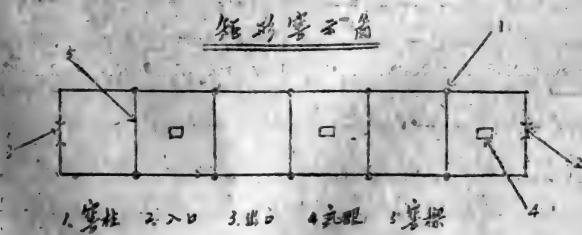 矩形窖示意
1
5
3
2
4
1.窖柱 2.入口 3.出口 4.气眼 5.窖探